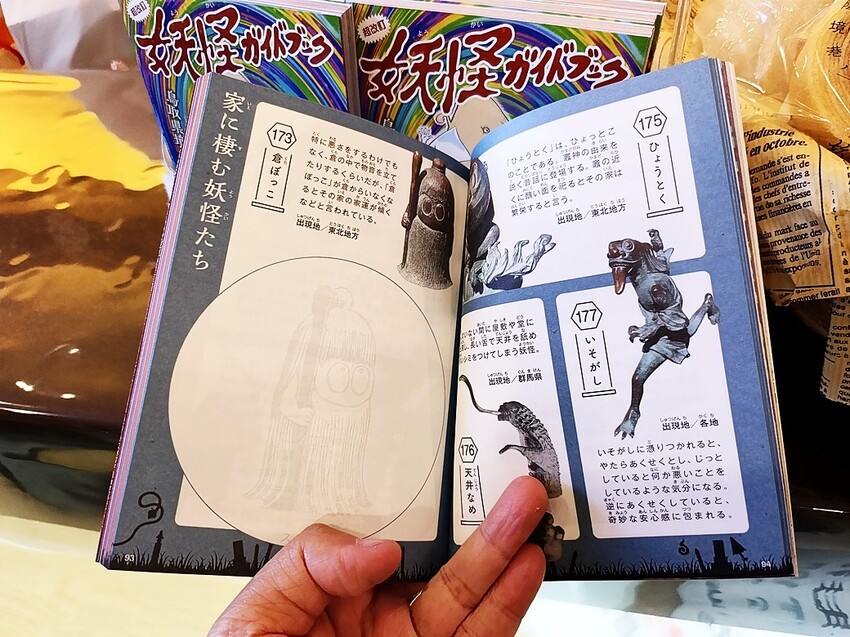 超改訂
妖怪ガイドブック
鳥取県境
超改訂
妖怪ガイドブック
家に棲む妖怪たち
173
倉ぼっこ
特に悪さをするわけでも
なく、倉の中で物音を立て
たりするくらいだが、「倉
ぼっこ」が倉からいなくな
るとその家の家運が傾く
などと言われている。
出現地／東北地方
93
175
ひょうとく
「ひょうとく」は、ひょっとこ
のことである。竈神の由来を
説く昔話に登場する。竈の近
くに醜い面を祀るとその家は
繁栄すると言う。
出現地／東北地方
いない間に屋敷や堂に
、長い舌で天井を舐め
シミをつけてしまう妖怪。
出現地／群馬県
176
天井なめ
177
いそがし
出現地／各地
いそがしに憑りつかれると、
やたらあくせくとし、じっと
していると何か悪いことを
しているような気分になる。
逆にあくせくしていると、
奇妙な安心感に包まれる。
94
境港
l'industrie
en octobre.